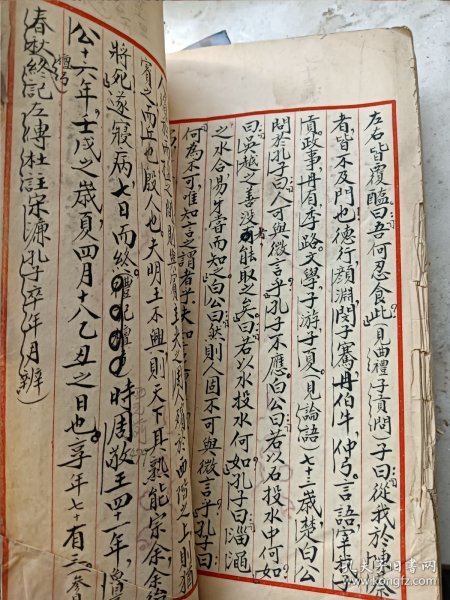 左右皆覆醢曰吾何忍食此(見曲禮子貢問)子曰從我於陳蔡
者皆不及門也德行顏淵閔子騫冉伯牛仲弓言語宰我子
貢政事冉有季路文學子游子夏(見論語)七十三歲楚白公
問於孔子曰人可與微言乎孔子不應白公曰若以石投水中何如
曰吳越之善没者能取之矣曰若以水投水何如孔子曰淄澠
之水合易牙嘗而知之白公曰然則人固不可與微言乎孔子曰
何為不可唯知言之謂者乎夫知
賓之而丘也殷人也夫明王不興則天下其孰能宗余余殆
將死遂寢病七日而終禮記檀弓時周敬王四十一年魯
公十六年壬戌之歲夏四月十八乙丑之日也享年七十有三
春秋終記左傳杜註宋濂孔子卒年月辨